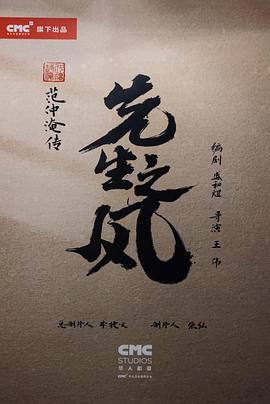 CMC 旗下出品
范仲淹传
先生之风
编剧 盛和煜 导演 王伟
总制片人 李捷文 制片人 张弘
CMC
STUDIOS
华人影业